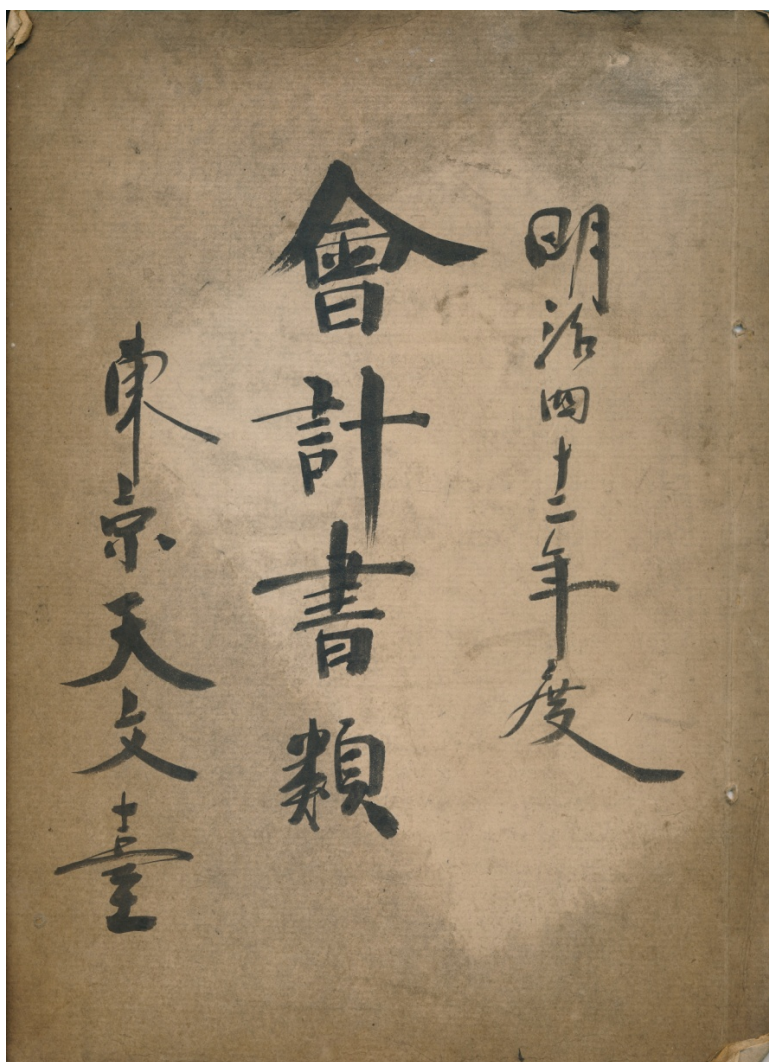 明治四十二年度
會計書類
東京天文臺